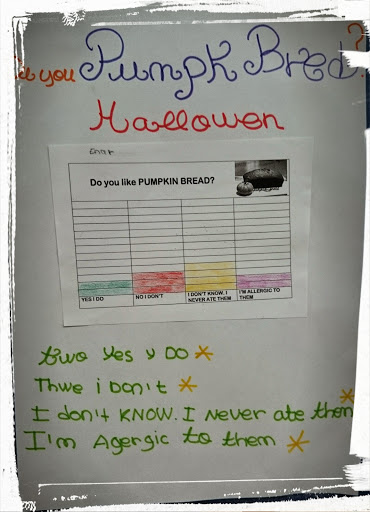 you Pumpk Bred?
Hallowen
Do you like PUMPKIN BREAD?
YES I DO
NO I DON'T
I DON'T KNOW. I NEVER ATE THEM
I'M ALLERGIC TO THEM
two Yes y DO
Thwe i Don't
I don't KNOW. I Never ate them
I'm Agergic to them